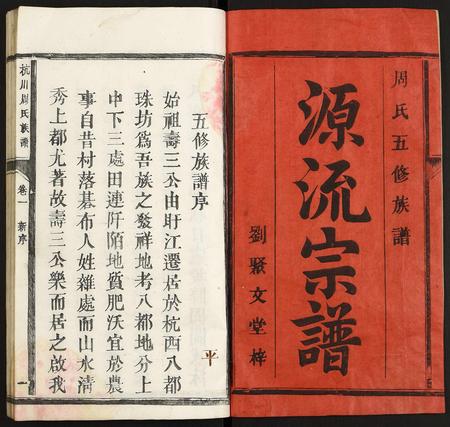 周氏五修族譜
源流宗譜
劉聚文堂梓
五修族譜序
始祖壽三公由盱江遷居於杭西八都
珠坊為吾族之發祥地考八都地分上
中下三處田連阡陌地質肥沃宜於農
事自昔村落碁布人姓雜處而山水清
秀上都尤著故壽三公樂而居之啟我
平
杭川周氏族譜
卷一
新序
一